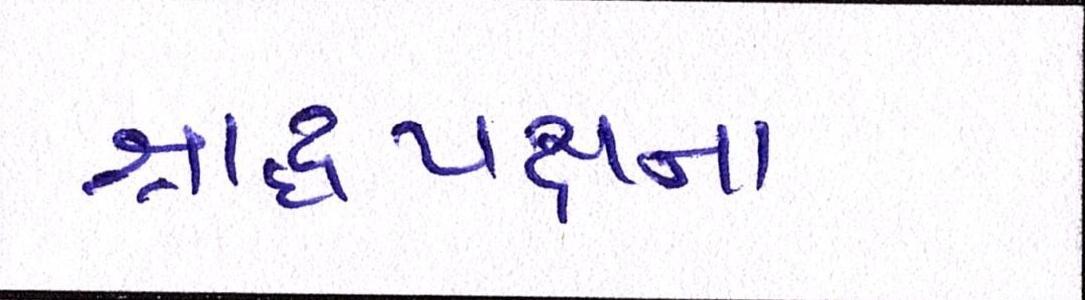 શ્રાદ્ધપક્ષના